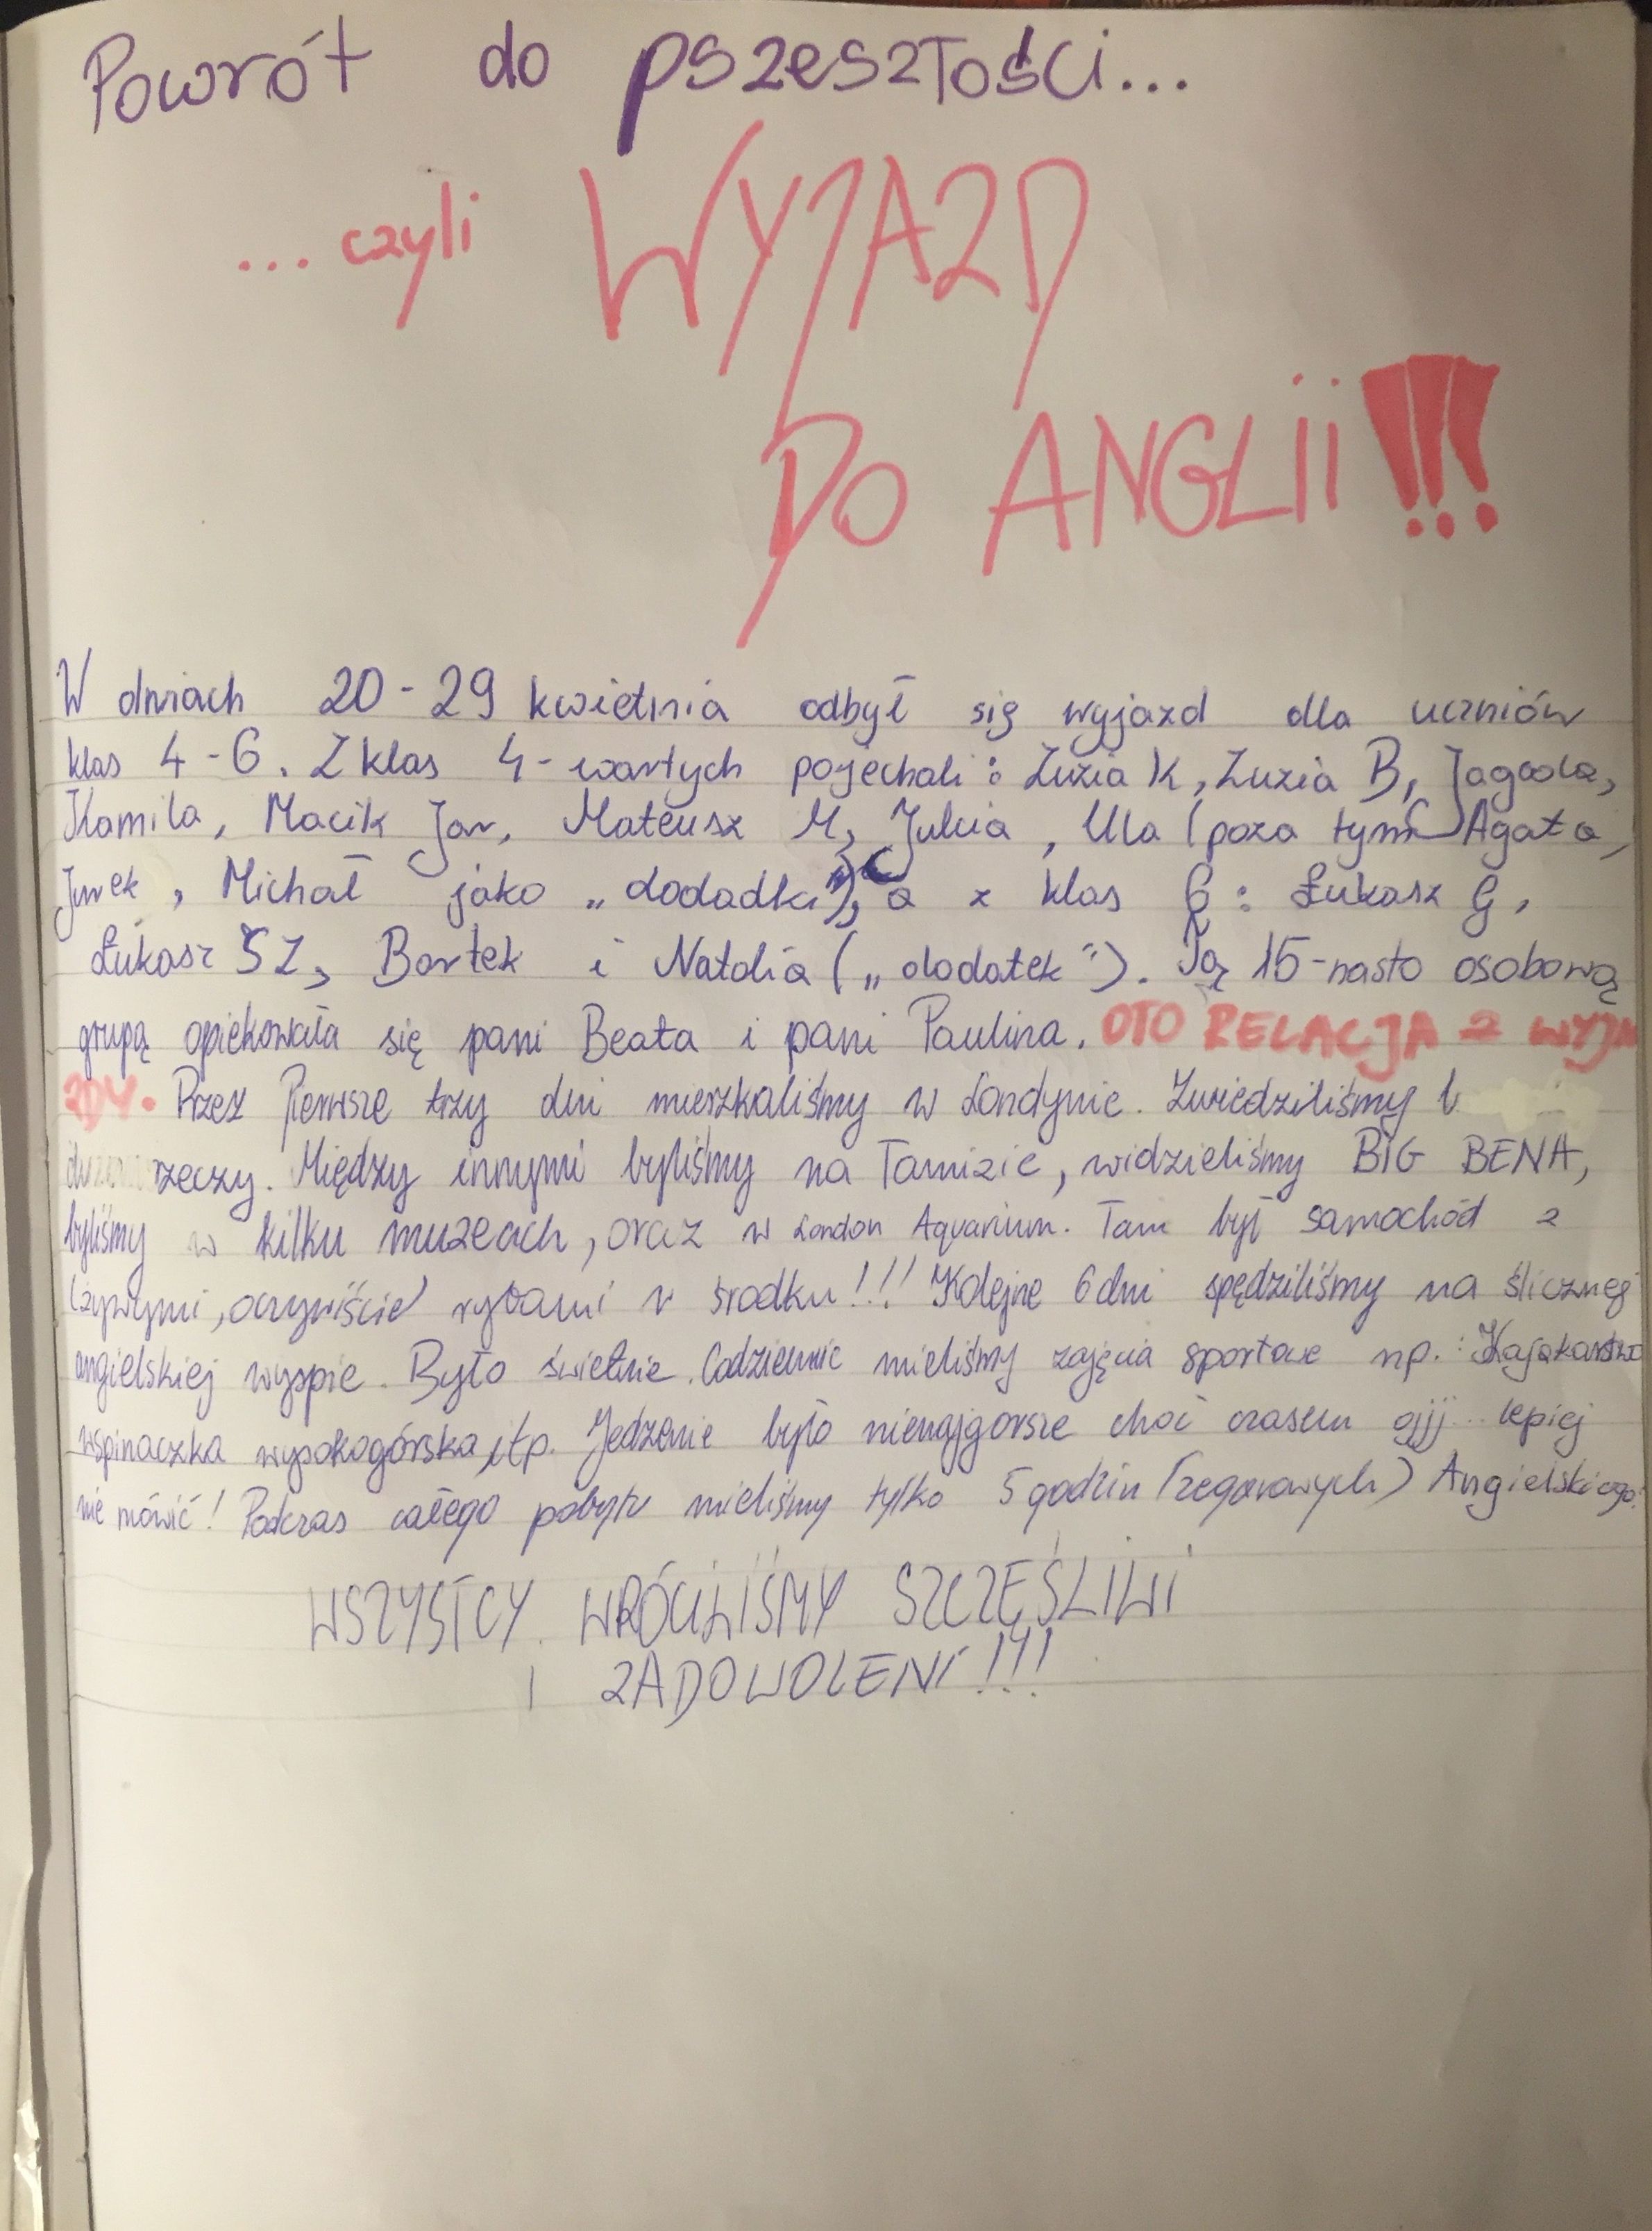 Powrót do pszeszłości...
...czyli WYJAZD
DO ANGLii!!!
W dniach 20-29 kwietnia odbył się wyjazd dla uczniów
klas 4-6. Z klas 4-wartych pojechali: Zuzia K, Zuzia B, Jagoda,
Kamila, Macik Jar, Mateusz M, Julcia, Ula (poza tym Agata,
Jurek, Michał jako „dodadki"), a z klas 6: Łukasz G,
Łukasz SZ, Bartek i Natalia („dodatek"). Tą 15-nasto osobową
grupą opiekowała się pani Beata i pani Paulina. OTO RELACJA Z WYJA
ZDY. Przez Pierwsze trzy dni mieszkaliśmy w Londynie. Zwiedziliśmy
rzeczy. Między innymi byliśmy na Tamizie, widzieliśmy BIG BENA,
byliśmy w kilku muzeach, oraz w London Aquarium. Tam był samochód z
(żywymi, oczywiście) rybami w środku!!! Kolejne 6 dni spędziliśmy na ślicznej
angielskiej wyspie. Było świetnie. Codziennie mieliśmy zajęcia sportowe np.: Kajakarstwo
wspinaczka wysokogórska, itp. Jedzenie było nienajgorsze choć czasem ojjj... lepiej
nie mówić! Podczas całego pobytu mieliśmy tylko 5 godzin (zegarowych) Angielskiego!
WSZYSTCY WRÓCILIŚMY SZCZĘŚLIWI
I ZADOWOLENI!!!